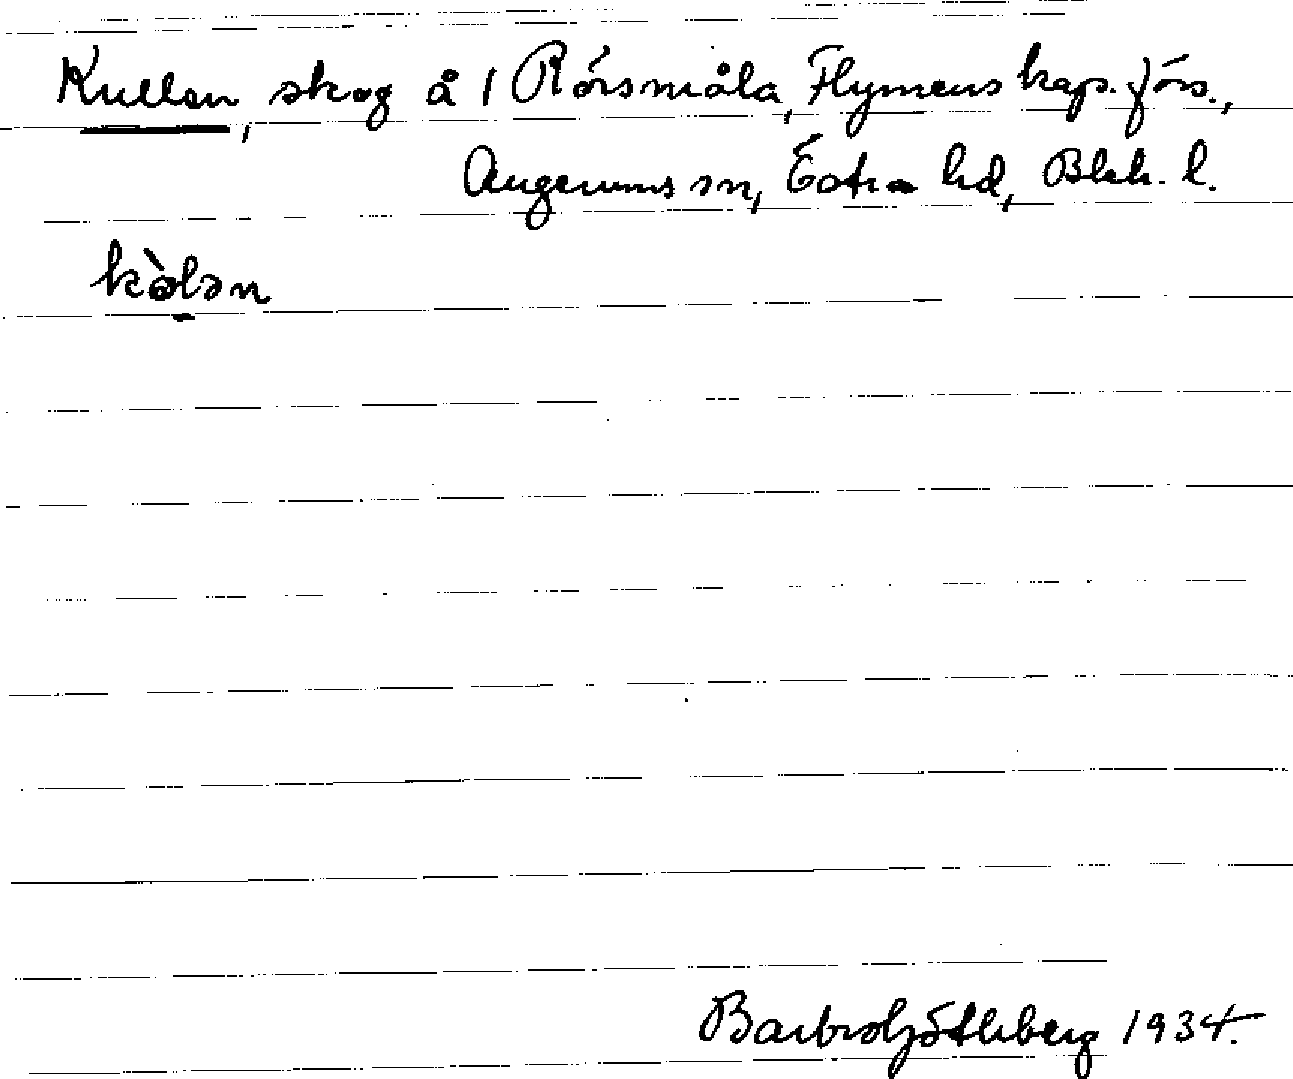 Kullen, skog å 1 Rörsmåla, Flymens kap. förs.,
Augerums sn, Östra hd, Blek. l.
kòlən
Barbro Götherberg 1934.